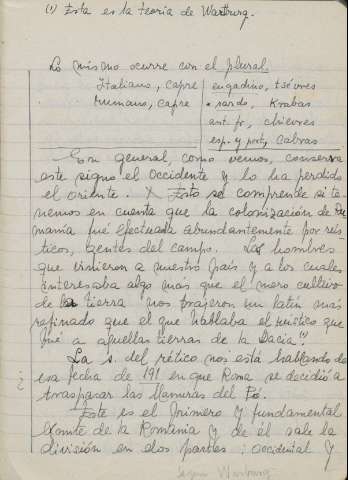 (1) Esta es la teoria de Wartburg.
Lo mismo ocurre con el plural
Italiano, capre
rumano, capre
engadino, tsévres
sardo, krabas
ant. fr, chievres
esp. y port, cabras
En general, como vemos, conserva
este signo el Occidente y lo ha perdido
el oriente. X Esto se comprende si te-
nemos en cuenta que la colonización de Ru
mania fué efectuada abundantemente por rús
ticos, gentes del campo. Los hombres
que vinieron a nuestro pais y a los cuales
interesaba algo más que el mero cultivo
de la tierra nos trajeron un latín más
refinado que el que hablaba el rústico que
fué a aquellas tierras de la Dacia (1)
La s. del rético nos está hablando de
esa fecha de 191 en que Roma se decidió a
¿ traspasar las llanuras del Po.
Este es el primero y fundamental
límite de la Romania y de él sale la
división en dos partes: occidental y
Según Warburg